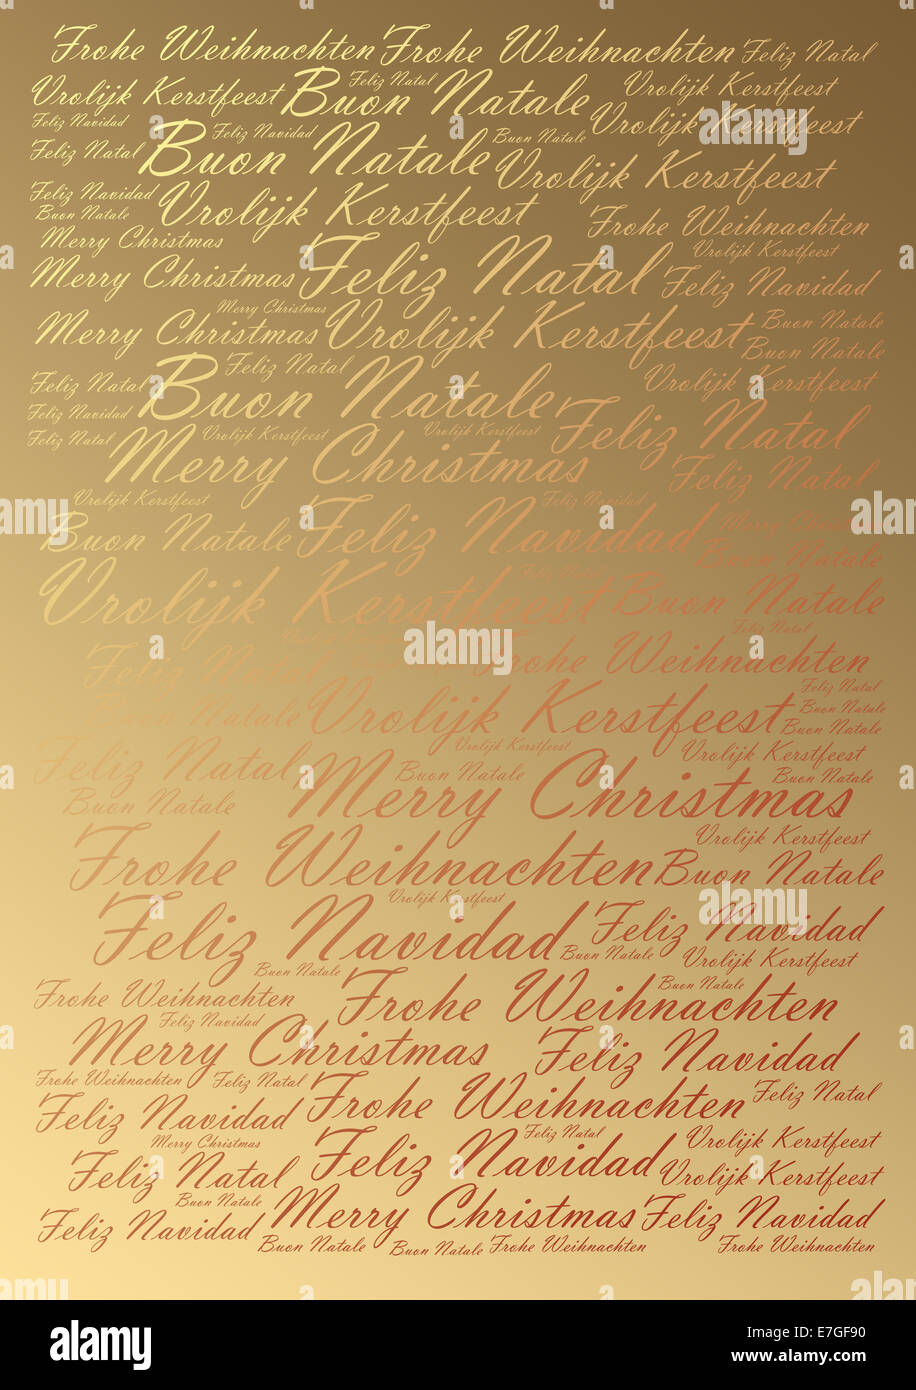 Frohe Weihnachten Frohe Weihnachten Feliz Natal
Vrolijk Kerstfeest Buon Natale Feliz Natal Vrolijk Kerstfeest
Feliz Navidad Feliz Navidad Buon Natale Vrolijk Kerstfeest
Feliz Natal Buon Natale Vrolijk Kerstfeest
Feliz Navidad Vrolijk Kerstfeest
Buon Natale Frohe Weihnachten
Merry Christmas Vrolijk Kerstfeest
Merry Christmas Feliz Natal Feliz Navidad
Merry Christmas
Merry Christmas Vrolijk Kerstfeest Buon Natale
Buon Natale
Feliz Natal Buon Natale Feliz Natal Vrolijk Kerstfeest
Feliz Navidad
Feliz Natal Vrolijk Kerstfeest Vrolijk Kerstfeest Feliz Natal
Merry Christmas Feliz Natal
Vrolijk Kerstfeest Feliz Navidad
Buon Natale Feliz Navidad Merry Christmas
Buon Natale
Vrolijk Kerstfeest Buon Natale
Feliz Natal
Feliz Natal alamy Frohe Weihnachten
Feliz Natal
Buon Natale Vrolijk Kerstfeest Buon Natale
Buon Natale
Vrolijk Kerstfeest Vrolijk Kerstfeest
Feliz Natal Buon Natale Buon Natale
Buon Natale Merry Christmas
Vrolijk Kerstfeest
Frohe Weihnachten Buon Natale
Vrolijk Kerstfeest
Feliz Navidad Feliz Navidad
Buon Natale Vrolijk Kerstfeest
Buon Natale Buon Natale
Frohe Weihnachten Frohe Weihnachten
Feliz Navidad
Merry Christmas Feliz Navidad
Frohe Weihnachten Feliz Natal
Feliz Navidad Frohe Weihnachten Feliz Natal
Merry Christmas Feliz Natal Vrolijk Kerstfeest
Feliz Natal Feliz Navidad Vrolijk Kerstfeest
Buon Natale
Feliz Navidad Merry Christmas Feliz Navidad
Buon Natale Buon Natale Frohe Weihnachten Frohe Weihnachten
alamy
E7GF90
www.alamy.com